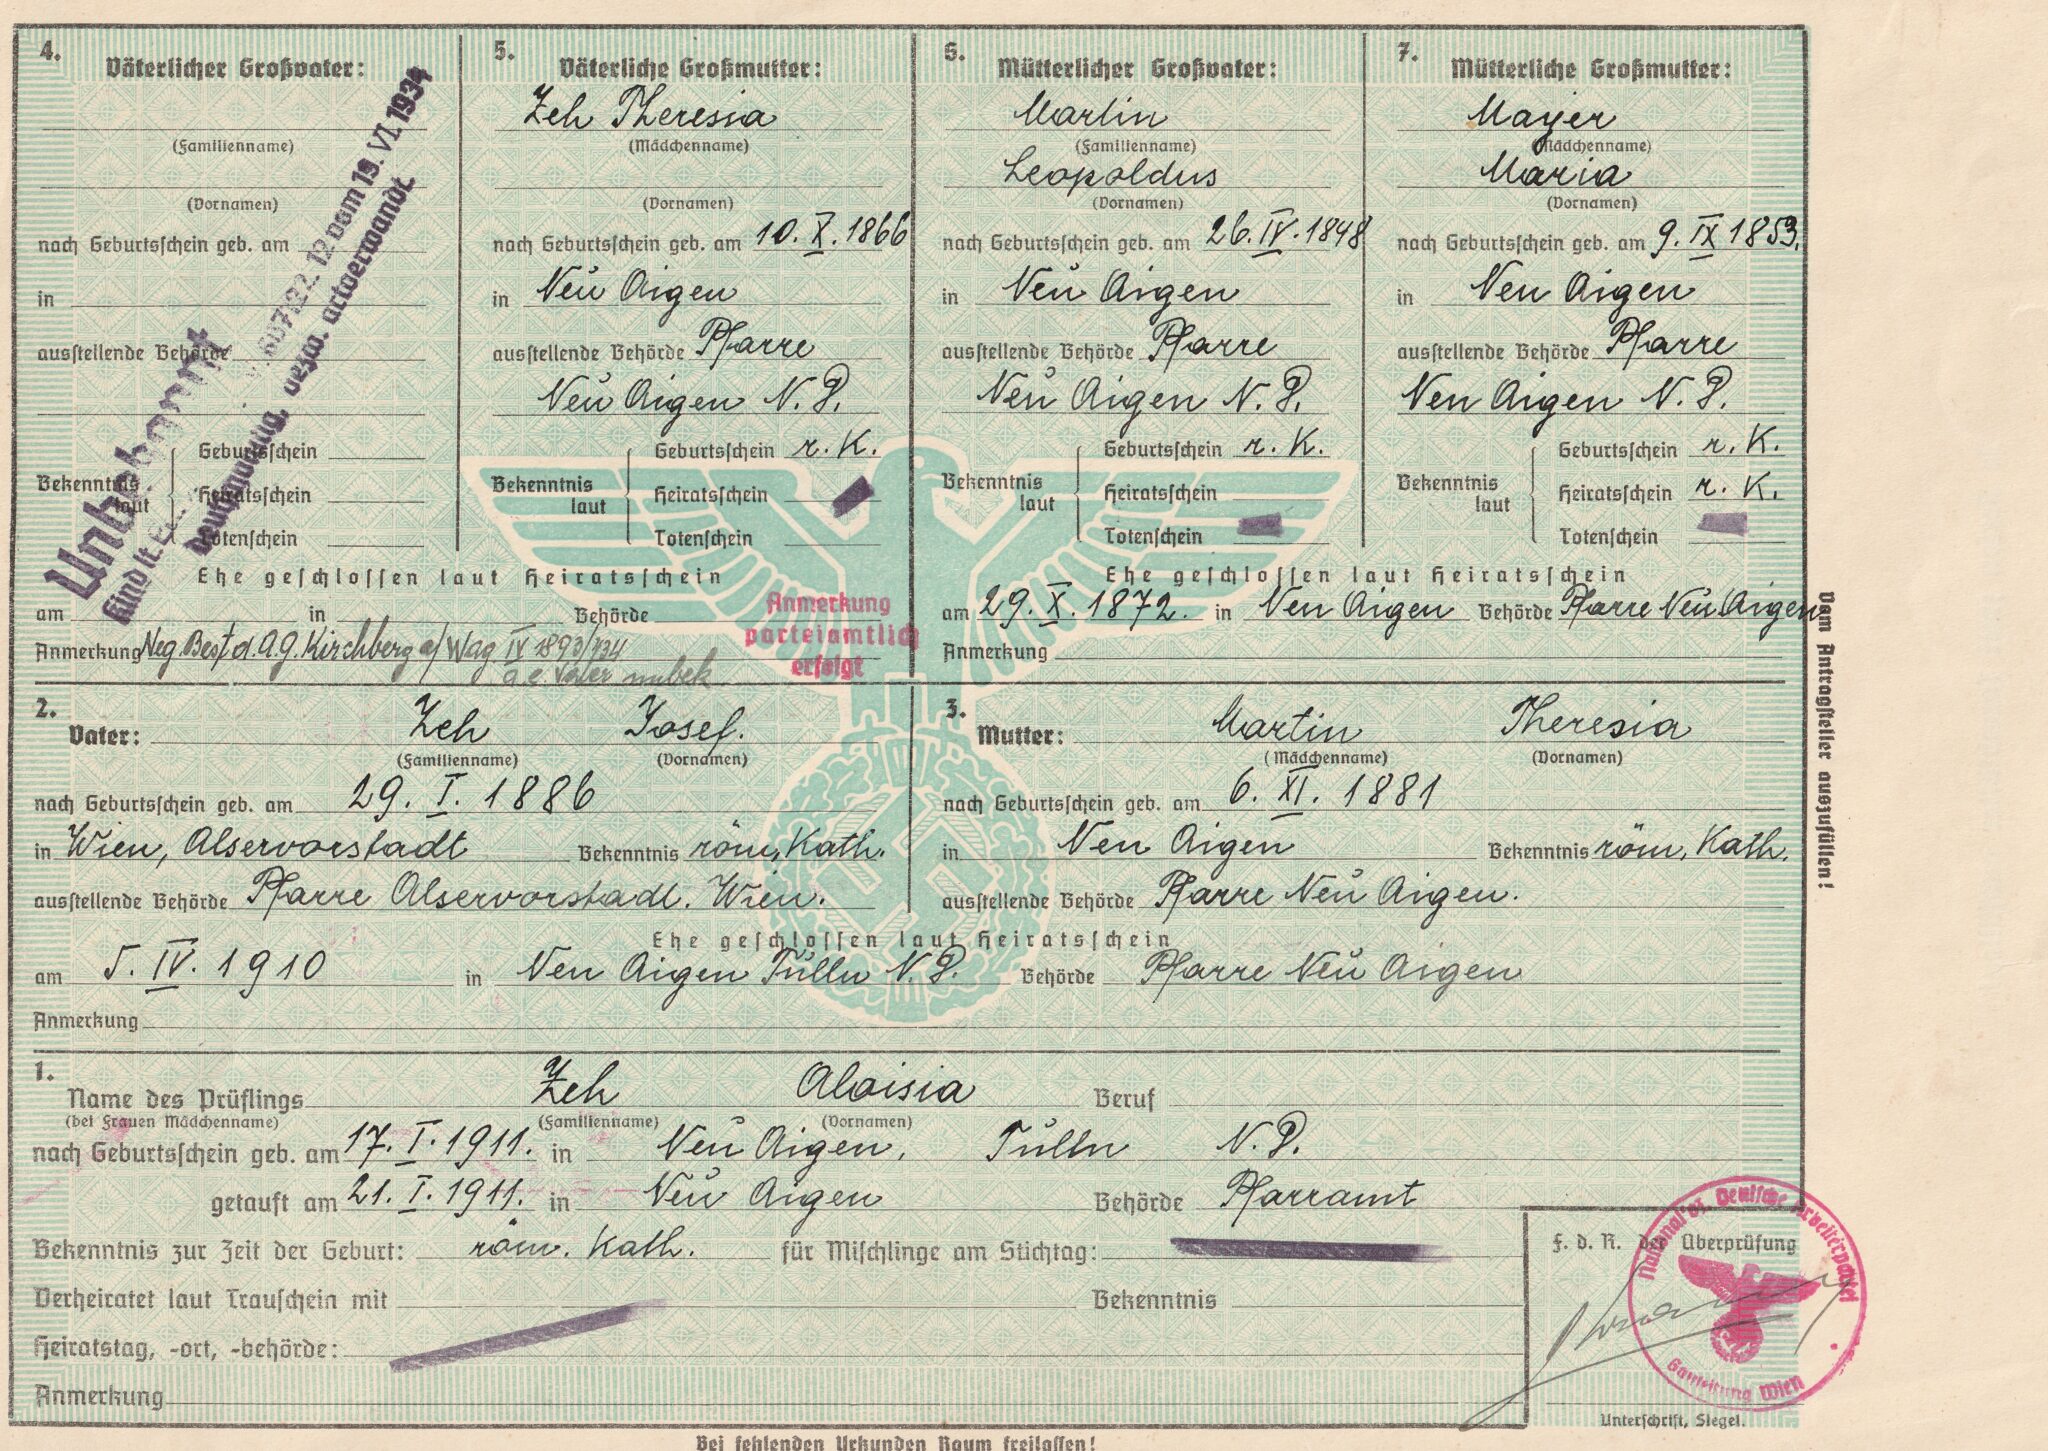 4.
Väterlicher Großvater:
(Familienname)
(Vornamen)
nach Geburtsschein geb. am
in
ausstellende Behörde
Bekenntnis laut
Geburtsschein
Heiratsschein
Totenschein
Unbekannt
Kind lt.
12 vom 19. VI. 1934
deutschblütig, bezw. artverwandt
5.
Väterliche Großmutter:
Zeh Theresia
(Mädchenname)
(Vornamen)
nach Geburtsschein geb. am 10. X. 1866
in Neu Aigen
ausstellende Behörde Pfarre
Neu Aigen N. D.
Bekenntnis laut
Geburtsschein r. K.
Heiratsschein
Totenschein
Ehe geschlossen laut Heiratsschein
am in Behörde
Anmerkung Neg. Best d. A.G. Kirchberg a/Wag IV 1893/134
Vater unbek
Anmerkung
parteiamtlich
erfolgt
6.
Mütterlicher Großvater:
Martin
(Familienname)
Leopoldus
(Vornamen)
nach Geburtsschein geb. am 26. IV. 1848
in Neu Aigen
ausstellende Behörde Pfarre
Neu Aigen N. D.
Bekenntnis laut
Geburtsschein r. K.
Heiratsschein
Totenschein
7.
Mütterliche Großmutter:
Mayer
(Mädchenname)
Maria
(Vornamen)
nach Geburtsschein geb. am 9. IX 1853.
in Neu Aigen
ausstellende Behörde Pfarre
Neu Aigen N. D.
Bekenntnis laut
Geburtsschein r. K.
Heiratsschein r. K.
Totenschein
Ehe geschlossen laut Heiratsschein
am 29. X. 1872. in Neu Aigen Behörde Pfarre Neu Aigen
Anmerkung
2.
Vater: Zeh Josef.
(Familienname) (Vornamen)
nach Geburtsschein geb. am 29. I. 1886
in Wien, Alservorstadt Bekenntnis röm. Kath.
ausstellende Behörde Pfarre Alservorstadt. Wien.
3.
Mutter: Martin Theresia
(Mädchenname) (Vornamen)
nach Geburtsschein geb. am 6. XI. 1881
in Neu Aigen Bekenntnis röm. Kath.
ausstellende Behörde Pfarre Neu Aigen.
Ehe geschlossen laut Heiratsschein
am 5. IV. 1910 in Neu Aigen Tulln N. D. Behörde Pfarre Neu Aigen
Anmerkung
1.
Name des Prüflings Zeh Aloisia Beruf
(bei Frauen Mädchenname) (Familienname) (Vornamen)
nach Geburtsschein geb. am 17. I. 1911. in Neu Aigen, Tulln N. D.
getauft am 21. I. 1911. in Neu Aigen Behörde Pfarramt
Bekenntnis zur Zeit der Geburt: röm. Kath. für Mischlinge am Stichtag:
Verheiratet laut Trauschein mit Bekenntnis
Heiratstag, -ort, -behörde:
Anmerkung
F. d. R. der Überprüfung
National-soz. Deutsche Arbeiterpartei
Gauleitung Wien
Unterschrift, Siegel.
Vom Antragsteller auszufüllen!
Bei fehlenden Urkunden Raum freilassen!